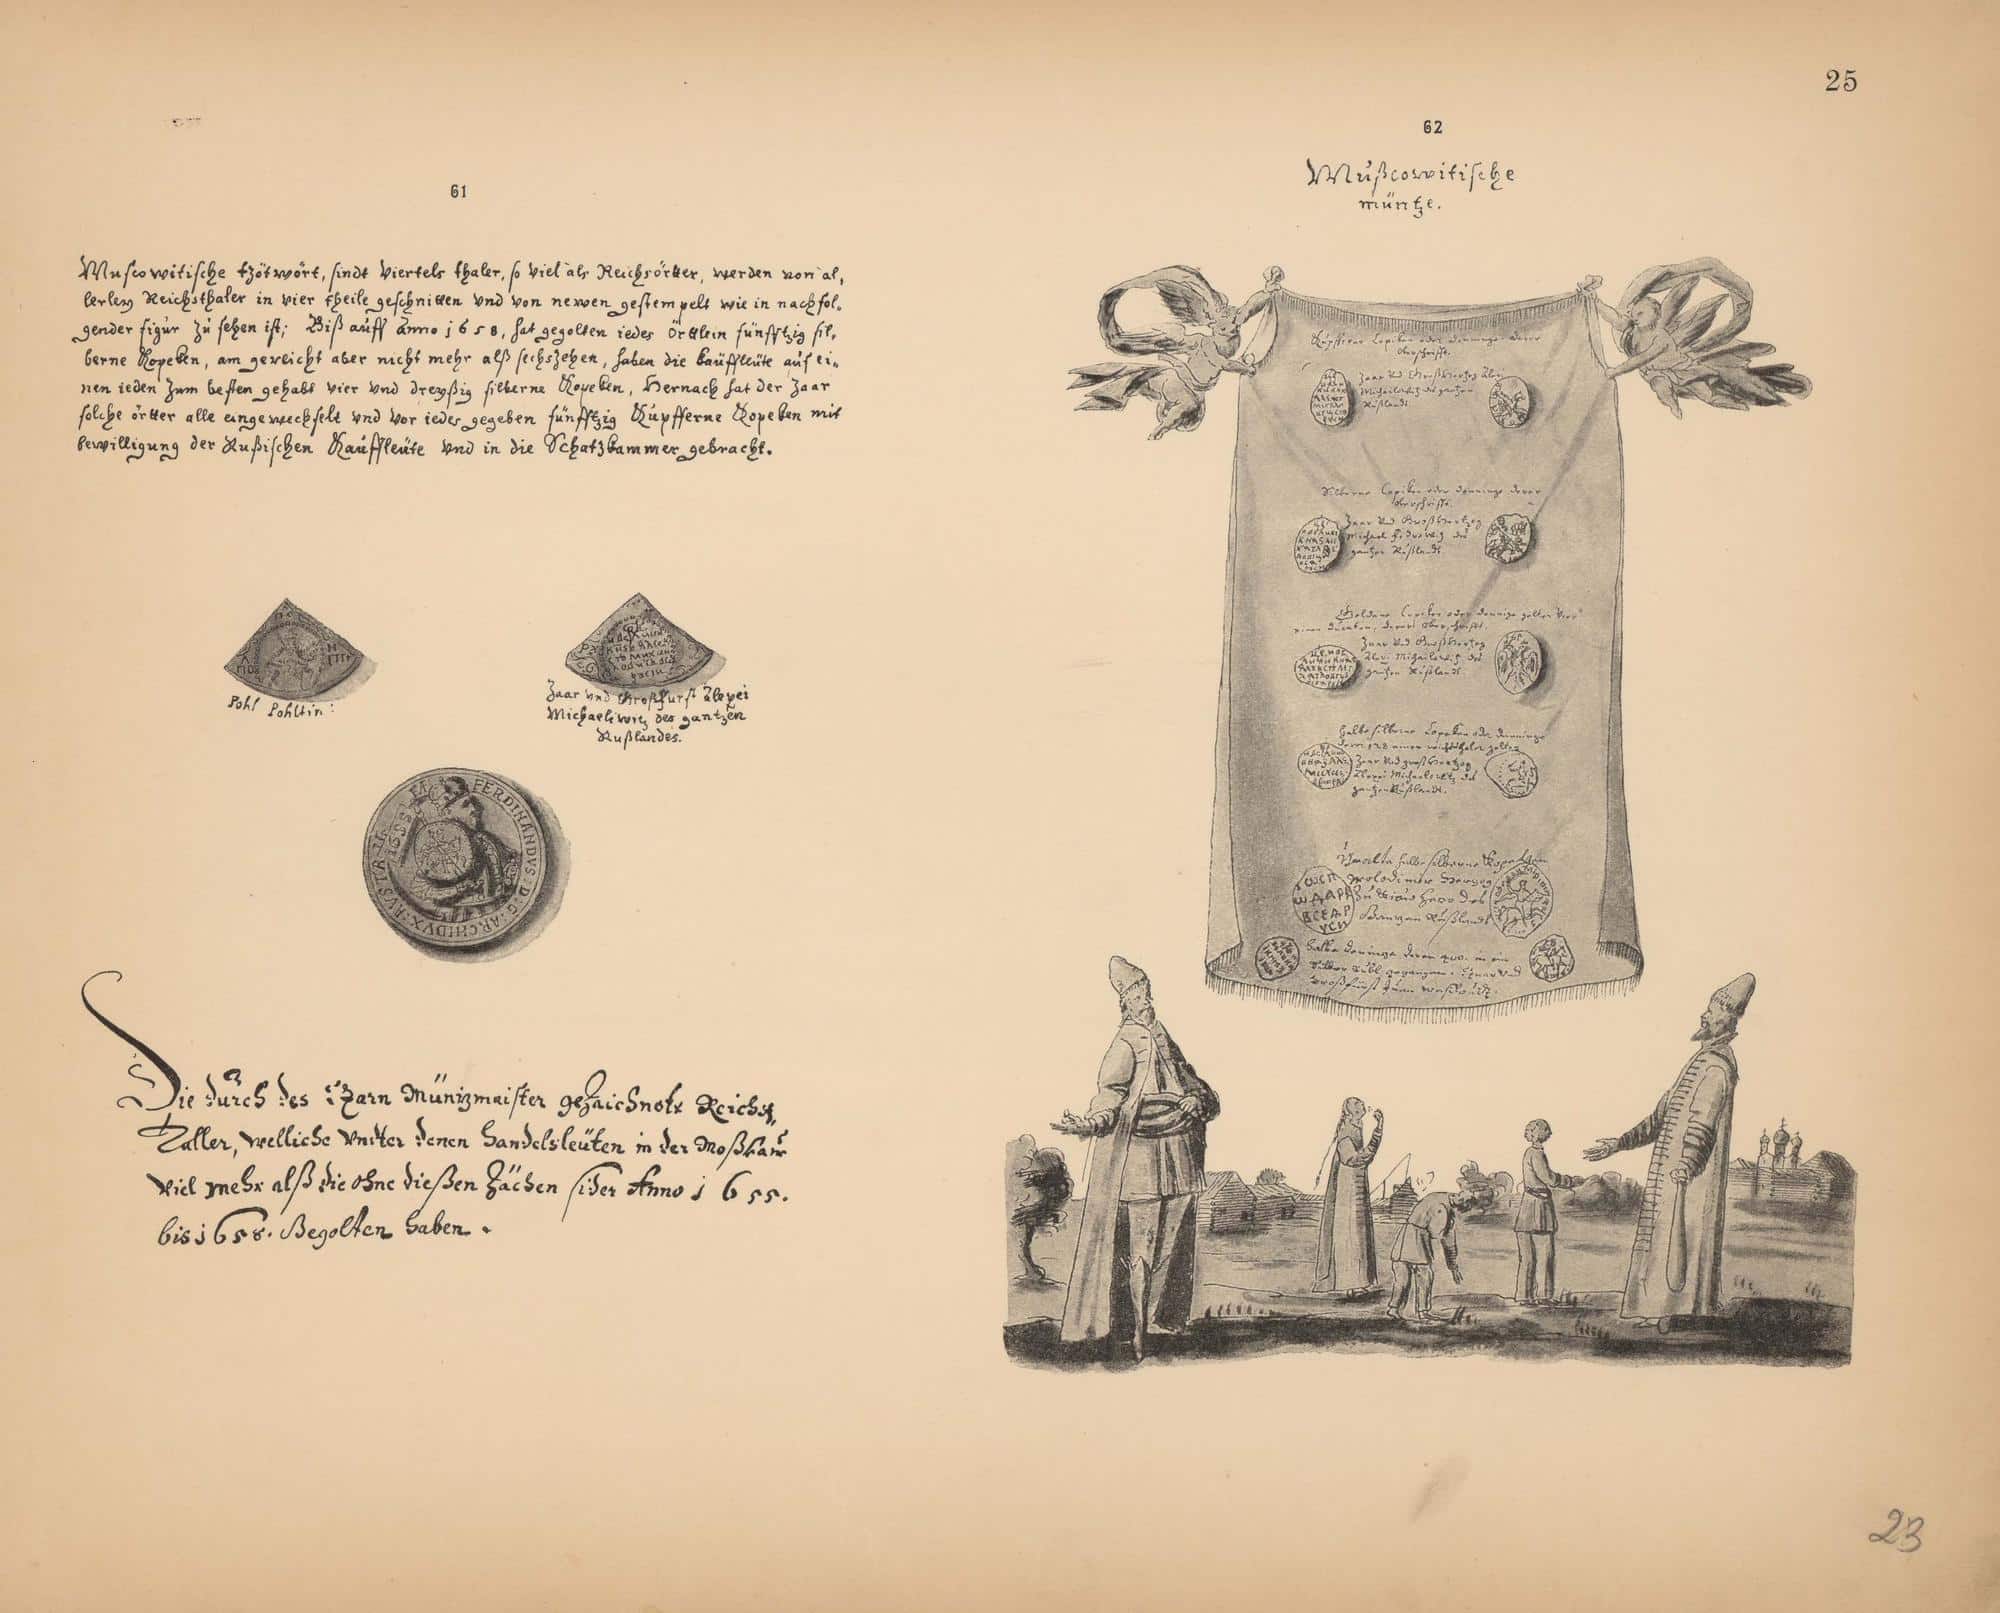 25
61
Muscowitische tzötwört, sindt viertels thaler, so viel als Reichsörtter, werden von al,
lerley Reichsthaler in vier theile geschnitten vnd von newen gestempelt wie in nachfol-
gender figur zu sehen ist; Biß auff anno 1658, hat gegolten iedes Örttlein fünfftzig sil,
berne Kopeken, am gewicht aber nicht mehr alß sechszehen, haben die kauffleüte auf ei,,
nen ieden zum besten gehabt vier vnd dreyßig silberne Kopeken, Hernach hat der Zaar
solche örtter alle eingewechselt vnd vor iedes gegeben fünfftzig Kupfferne Kopeken mit
bewilligung der Rußischen Kauffleüte vnd in die Schatzkammer gebracht.
Pohl Pohltin:
Zaar vnd Großfurst Alexei
Michaeliwitz des gantzen
Rußlandes.
FERDINANDVS: D: G: ARCHIDVX: AVSTR
1655
Die durch des Czarn Müntzmaister gezaichnote Reichs,
Taller, welliche vnter denen handelsleüten in der Moßkaw
viel mehr alß die ohne dießen Zächen sider Anno 1655.
bis 1658. Begolten haben.
62
Mußcowitische
müntze.
Kupfferne Copiken oder denninge derer
Vberschriffte.
Zaar vnd Großhertzog Alexi
Michaelewitz des gantzen
Rußlandt.
Silberne Copiken oder denninge derer
Vberschriffte.
Zaar vnd Großhertzog
Michael des
gantzen Rußlandt.
Goldene Copiken oder denninge gelten vier
einen ducaten, deren Vberschrifft.
Zaar vnd Großhertzog
Alexi Michaelewitz des
gantzen Rußlandt.
halbe silberne Copeken oder denninge
deren 128 einen reichsthaler gelten
Zaar vnd großhertzog
Alexei Michaelewitz des
gantzen Rußlandt.
halbe silberne Kopeken
Wolodimir Hertzog
Herr des
Gantzen Rußlandt
halbe denninge deren 400. in ein
Silber Rubl gegangen. Czaar vnd
Großfürst
23